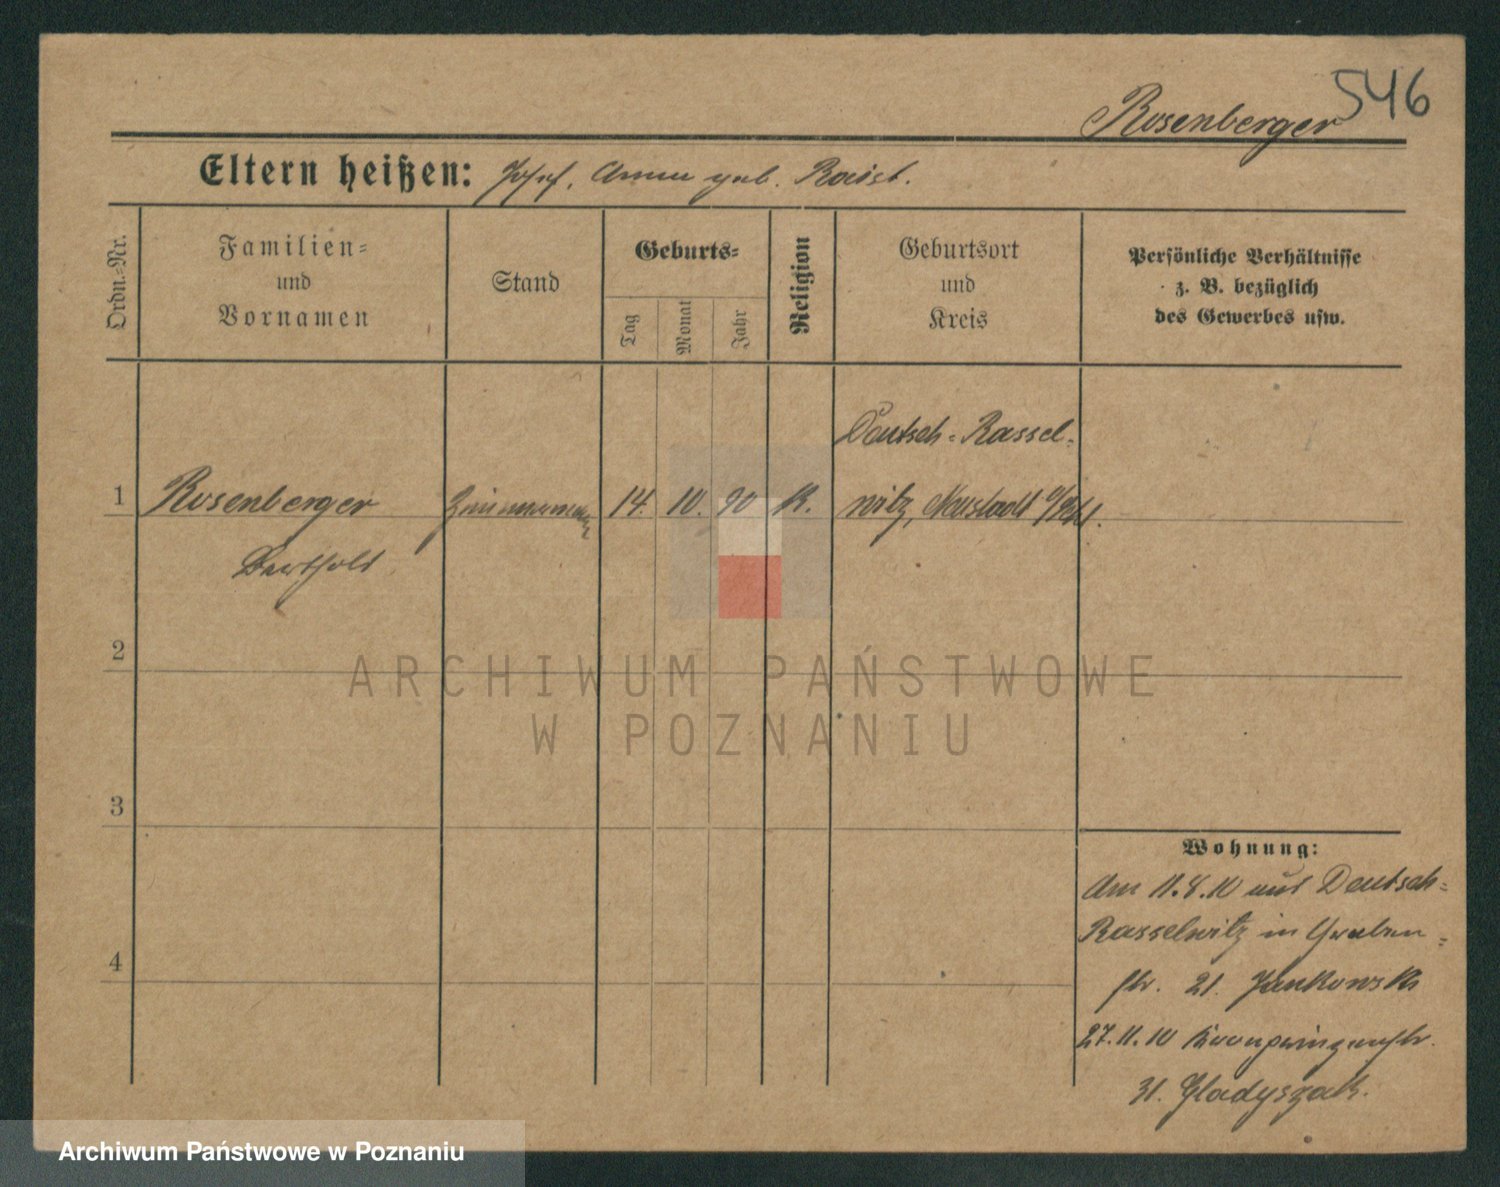 546
Rosenberger
Eltern heißen: Josef, Anna geb. Raist.
Ordn.=Nr.
Familien=
und
Vornamen
Stand
Geburts=
Tag
Monat
Jahr
Religion
Geburtsort
und
Kreis
Persönliche Verhältnisse
z. B. bezüglich
des Gewerbes usw.
Deutsch=Rassel=
1 Rosenberger Zimmermann 14. 10. 90 K. witz, Neustadt
Berthold
2
3
4
Wohnung:
Am 11.8.10 aus Deutsch=
Rasselwitz in Graben=
str. 21. Jankowski
27.11.10 Kronprinzenstr.
31. Gladyszak.
ARCHIWUM PAŃSTWOWE
W POZNANIU
Archiwum Państwowe w Poznaniu